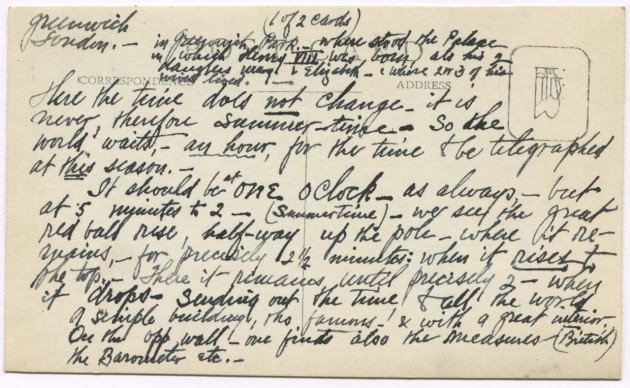 Greenwich (1 of 2 cards)
London. — in Greenwich Park — where stood the Palace
in which Henry VIII was born, also his 2
daughters Mary & Elizabeth — & where 2 or 3 of his
wives lived. —
CORRESPONDENCE ADDRESS
Here the time does not change — it is
never therefore Summer-time — So the
world waits, — an hour, for the time to be telegraphed
at this season. —
It should be at ONE O'Clock — as always, — but
at 5 minutes to 2 — (Summertime) — we see the great
red ball rise, half-way up the pole — where it re-
mains, — for precisely 2½ minutes: when it rises to
the top, — There it remains until precisely 2 — when
it drops — sending out the time to all the world
A simple building, tho famous — & with a great interior
On the opp. wall — one finds also the measures (British)
the Barometer etc. —